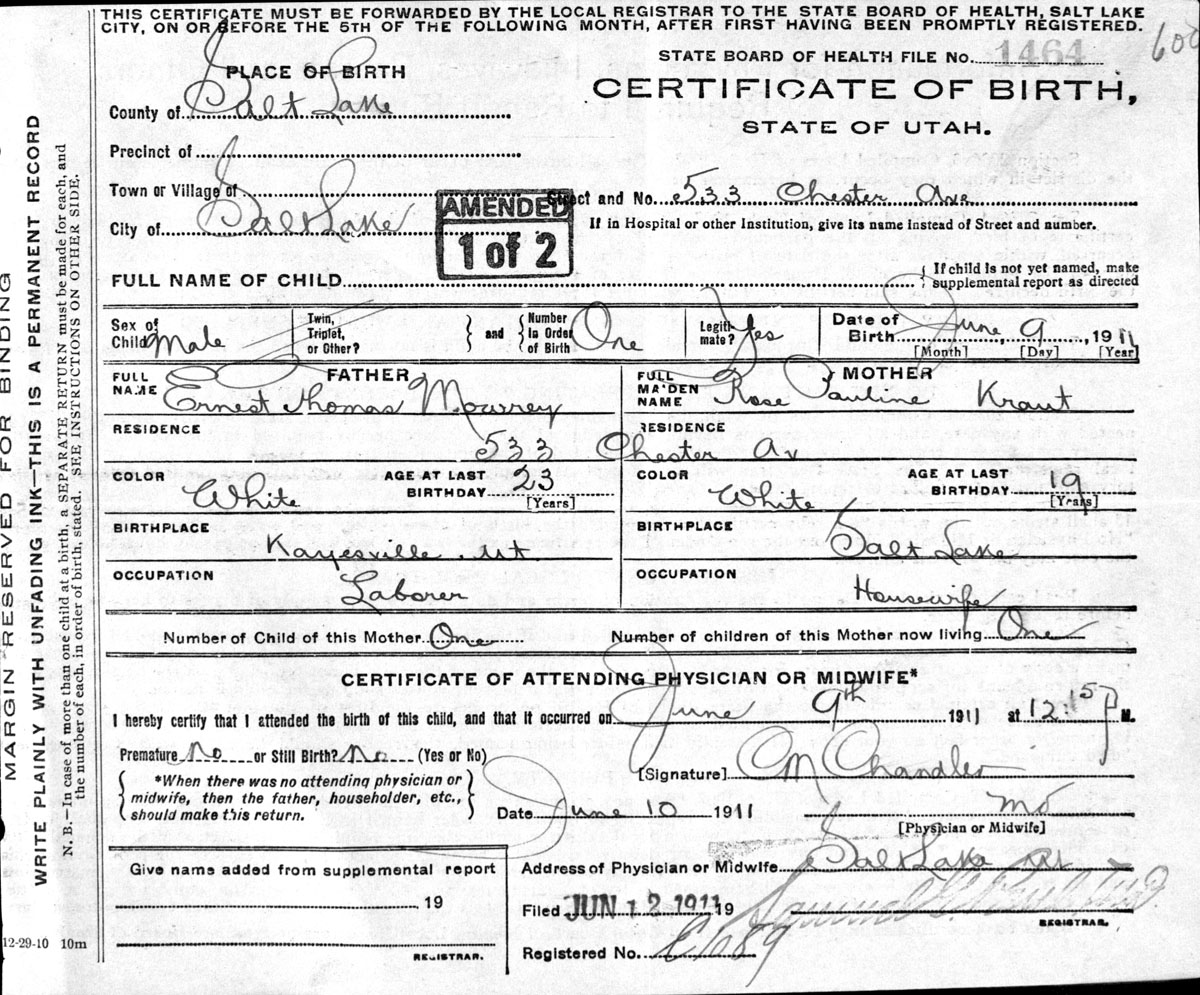 THIS CERTIFICATE MUST BE FORWARDED BY THE LOCAL REGISTRAR TO THE STATE BOARD OF HEALTH, SALT LAKE
CITY, ON OR BEFORE THE 5TH OF THE FOLLOWING MONTH, AFTER FIRST HAVING BEEN PROMPTLY REGISTERED.
STATE BOARD OF HEALTH FILE No. 1464
PLACE OF BIRTH
CERTIFICATE OF BIRTH,
STATE OF UTAH.
County of Salt Lake
Precinct of
Town or Village of
Street and No. 533 Chester Ave
City of Salt Lake
If in Hospital or other Institution, give its name instead of Street and number.
AMENDED
1 of 2
FULL NAME OF CHILD
If child is not yet named, make
supplemental report as directed
Sex of Child Male
Twin, Triplet, or Other?
and
Number in Order of Birth One
Legitimate? Yes
Date of Birth June 9, 1911
[Month] [Day] [Year
FATHER
FULL NAME Ernest Thomas Mowrey
MOTHER
FULL MAIDEN NAME Rose Pauline Kraut
RESIDENCE 533 Chester Av
RESIDENCE
COLOR White AGE AT LAST BIRTHDAY 23 [Years]
COLOR White AGE AT LAST BIRTHDAY 19 [Years]
BIRTHPLACE Kayesville Ut
BIRTHPLACE Salt Lake
OCCUPATION Laborer
OCCUPATION Housewife
Number of Child of this Mother One
Number of children of this Mother now living One
CERTIFICATE OF ATTENDING PHYSICIAN OR MIDWIFE*
I hereby certify that I attended the birth of this child, and that it occurred on June 9th 1911 at 12:15 P M.
Premature No or Still Birth? No (Yes or No)
[Signature] C M Chandler
*When there was no attending physician or
midwife, then the father, householder, etc.,
should make this return.
Date June 10 1911
MD
[Physician or Midwife]
Give name added from supplemental report
19
REGISTRAR.
Address of Physician or Midwife Salt Lake Ut
Filed JUN 12 1911 19
REGISTRAR.
Registered No.
MARGIN RESERVED FOR BINDING
WRITE PLAINLY WITH UNFADING INK—THIS IS A PERMANENT RECORD
N. B.—In case of more than one child at a birth, a SEPARATE RETURN must be made for each, and
the number of each, in order of birth, stated. SEE INSTRUCTIONS ON OTHER SIDE.
12-29-10 10m